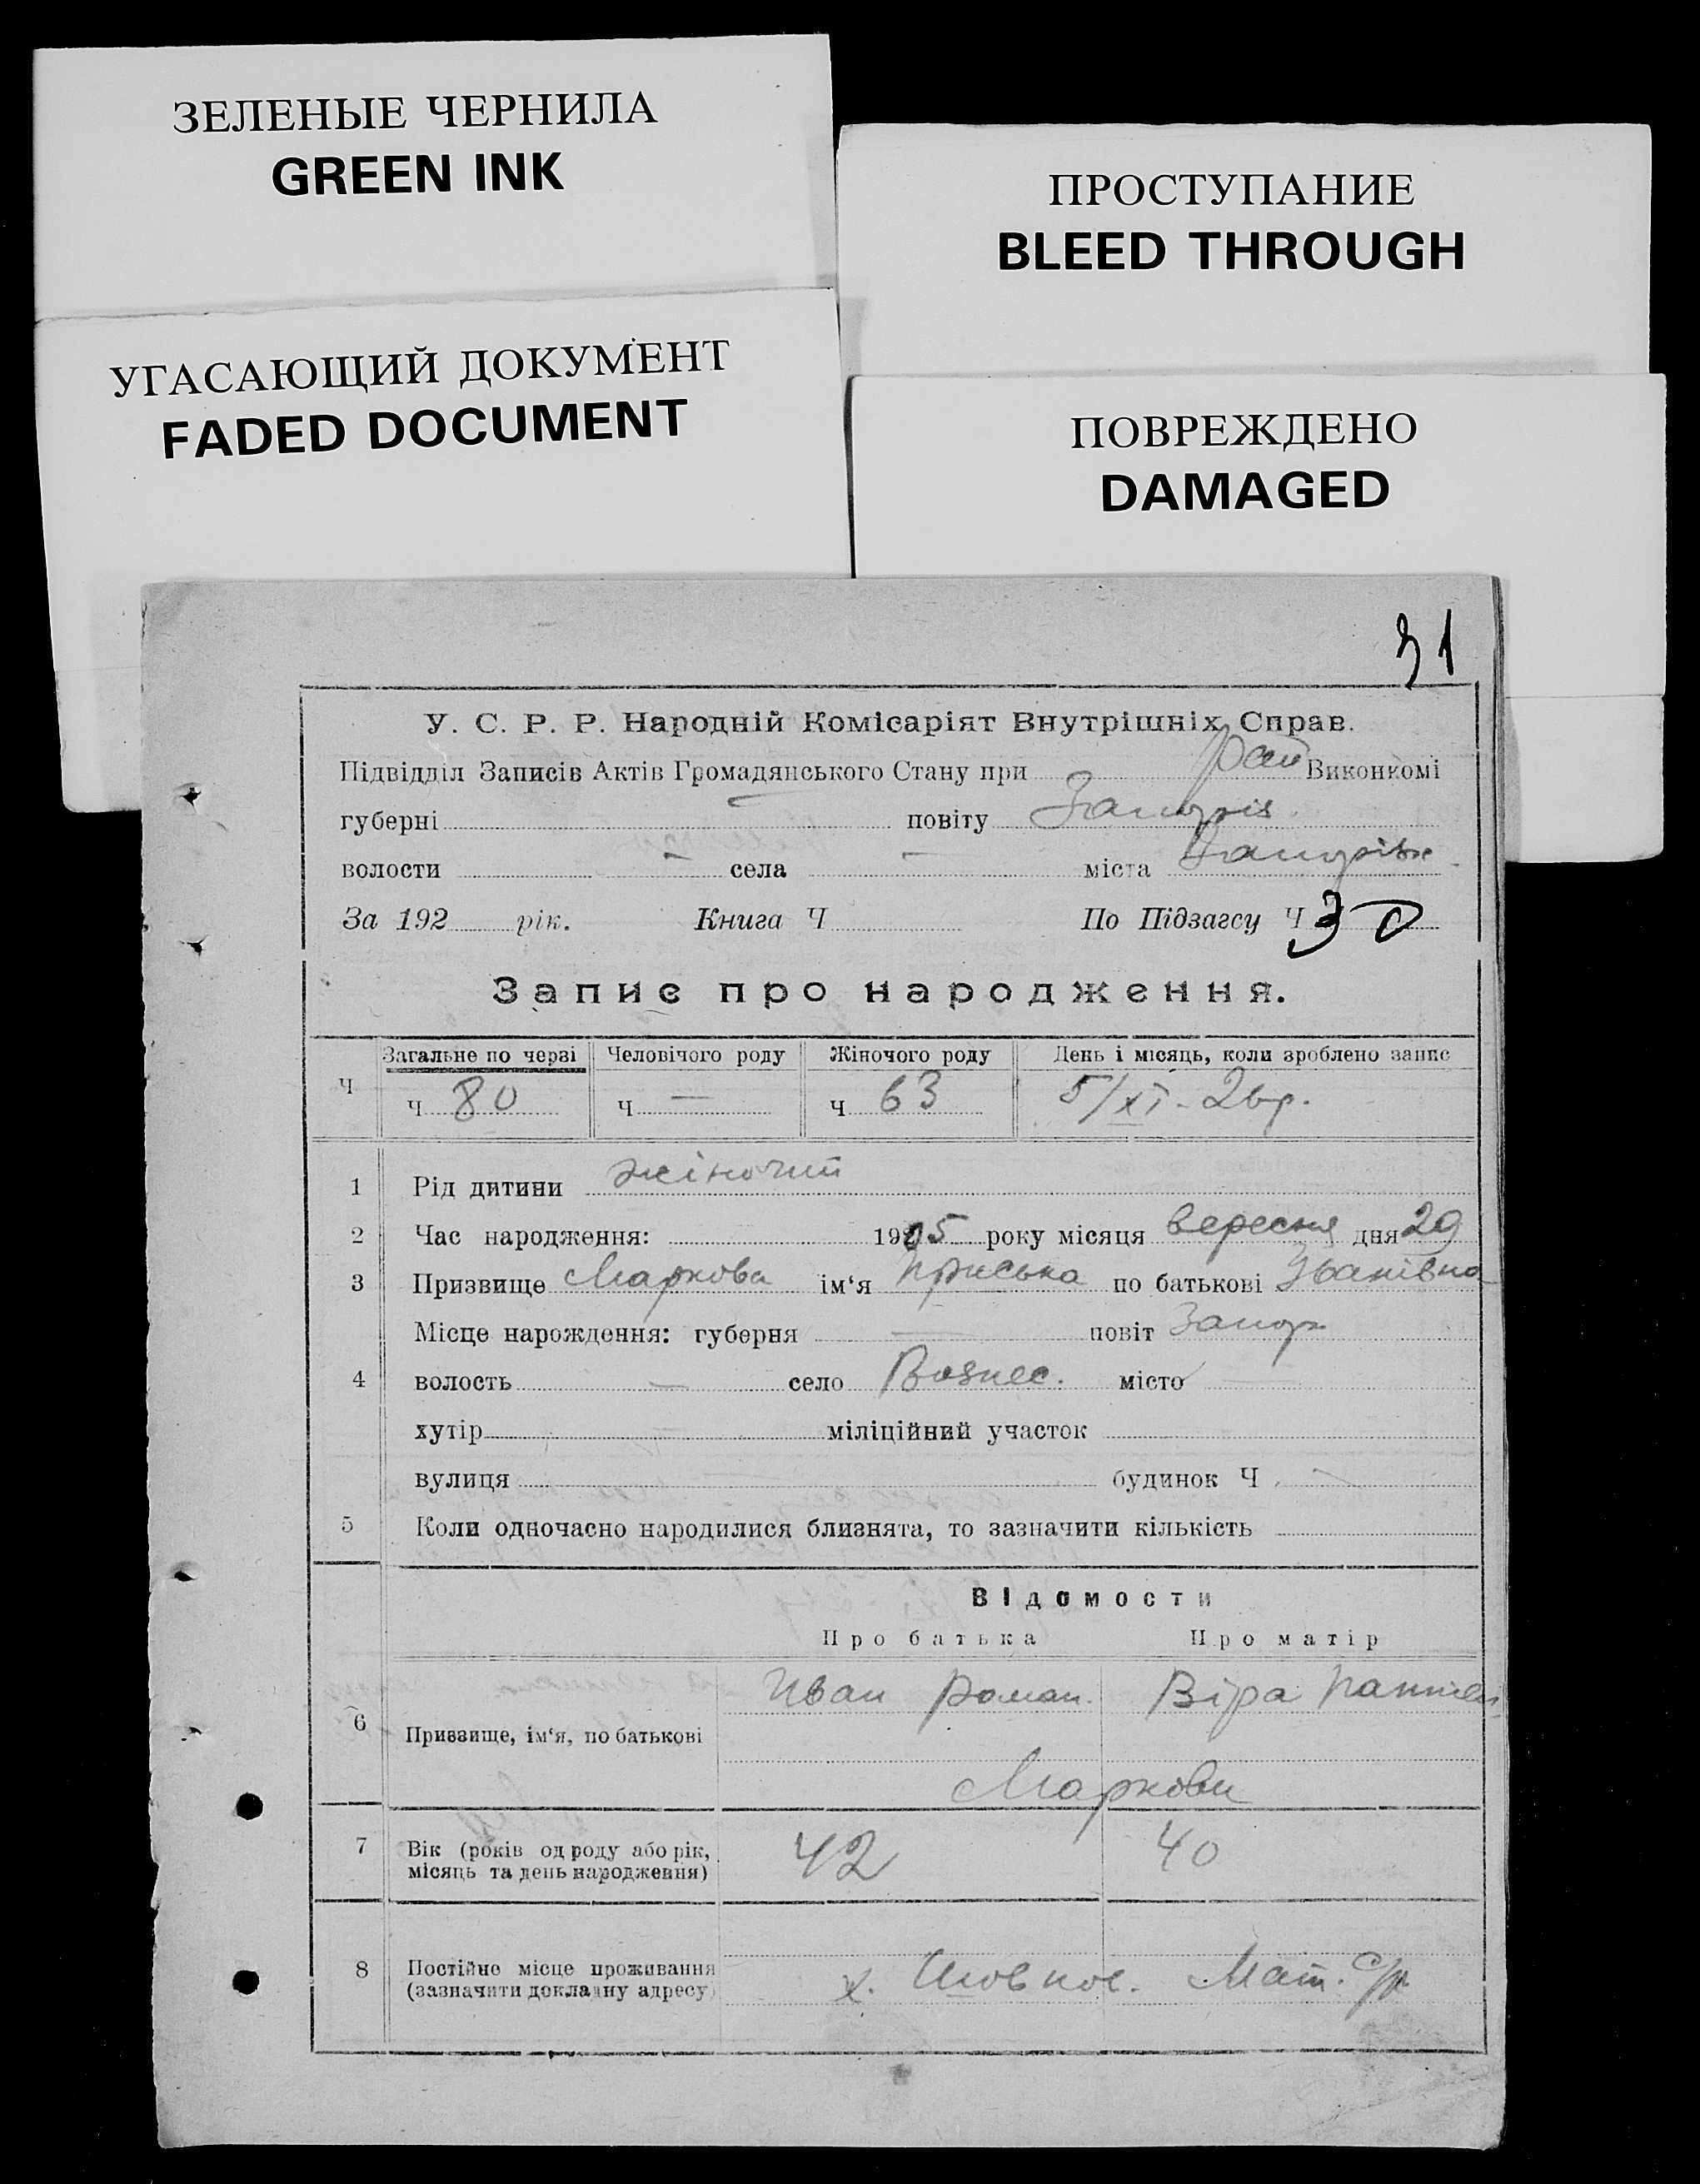 ЗЕЛЕНЫЕ ЧЕРНИЛА
GREEN INK
ПРОСТУПАНИЕ
BLEED THROUGH
УГАСАЮЩИЙ ДОКУМЕНТ
FADED DOCUMENT
ПОВРЕЖДЕНО
DAMAGED
31
У. С. Р. Р. Народній Комісаріят Внутрішніх Справ.
Підвідділ Записів Актів Громадянського Стану при Рай Виконкомі
губерні — повіту Запоріз.
волости — села — міста
За 192 рік. Книга Ч По Підзагсу Ч 30
Запис про народження.
Загальне по черзі Человічого роду Жіночого роду День і місяць, коли зроблено запис
Ч Ч 80 Ч — Ч 63 5/XI - 26 р.
1 Рід дитини жіночий
2 Час народження: 1905 року місяця вересня дня 29
3 Призвище Маркова ім‘я Приська по батькові Іванівна
Місце нарождення: губерня — повіт Запор
4 волость — село Вознес. місто —
хутір — міліційний участок
вулиця — будинок Ч —
5 Коли одночасно народилися близнята, то зазначити кількість
Відомости
Про батька Про матір
Иван Роман. Віра
6 Призвище, ім‘я, по батькові
Маркови
7 Вік (років од роду або рік, місяць та день народження) 42 40
8 Постійне місце проживання (зазначити докладну адресу) х. Мат. с/р